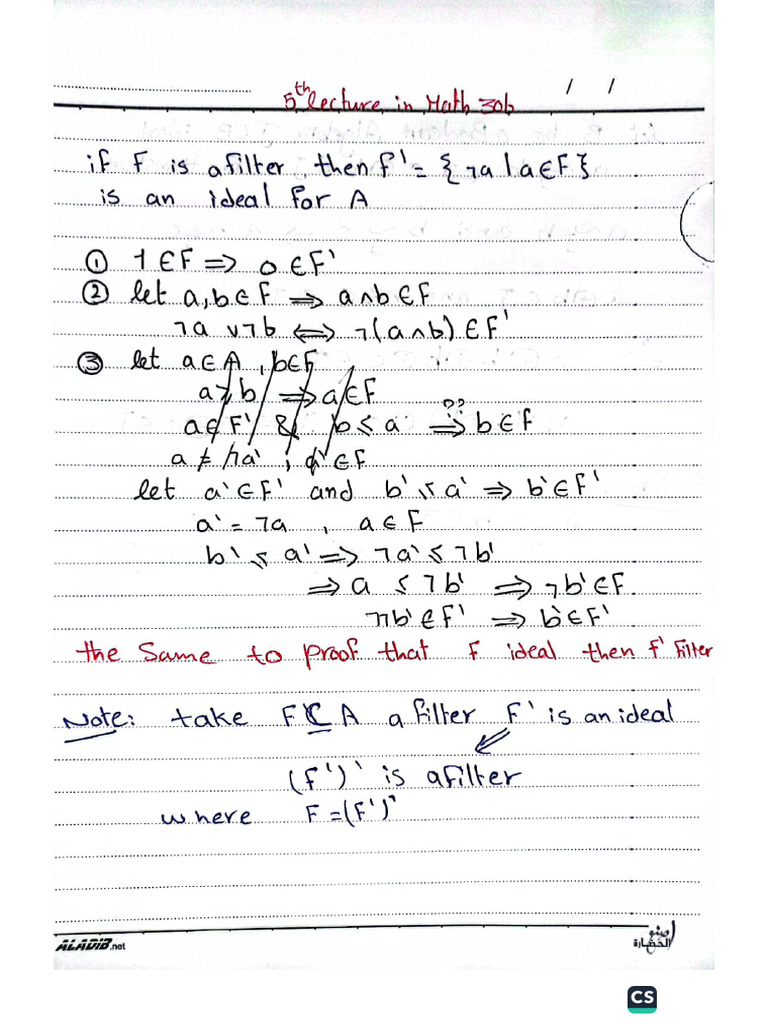 5th lecture in Math 306
/ /
if F is a filter, then F' = { ¬a | a ∈ F }
is an ideal for A
① 1 ∈ F ⇒ 0 ∈ F'
② let a, b ∈ F ⇒ a ∧ b ∈ F
¬a ∨ ¬b ⇔ ¬(a ∧ b) ∈ F'
③ let a ∈ A, b ∈ F
a ≥ b ⇒ a ∈ F
a ∈ F' & b ≤ a ⇒ b ∈ F
??
let a' ∈ F' and b' ≤ a' ⇒ b' ∈ F'
a' = ¬a , a ∈ F
b' ≤ a' ⇒ ¬a' ≤ ¬b'
⇒ a ≤ ¬b' ⇒ ¬b' ∈ F
¬¬b' ∈ F' ⇒ b' ∈ F'
the Same to proof that F ideal then F' Filter
Note: take F ⊂ A a filter F' is an ideal
(F')' is a filter
where F = (F')'
ALADIB.net
الحضارة
CS